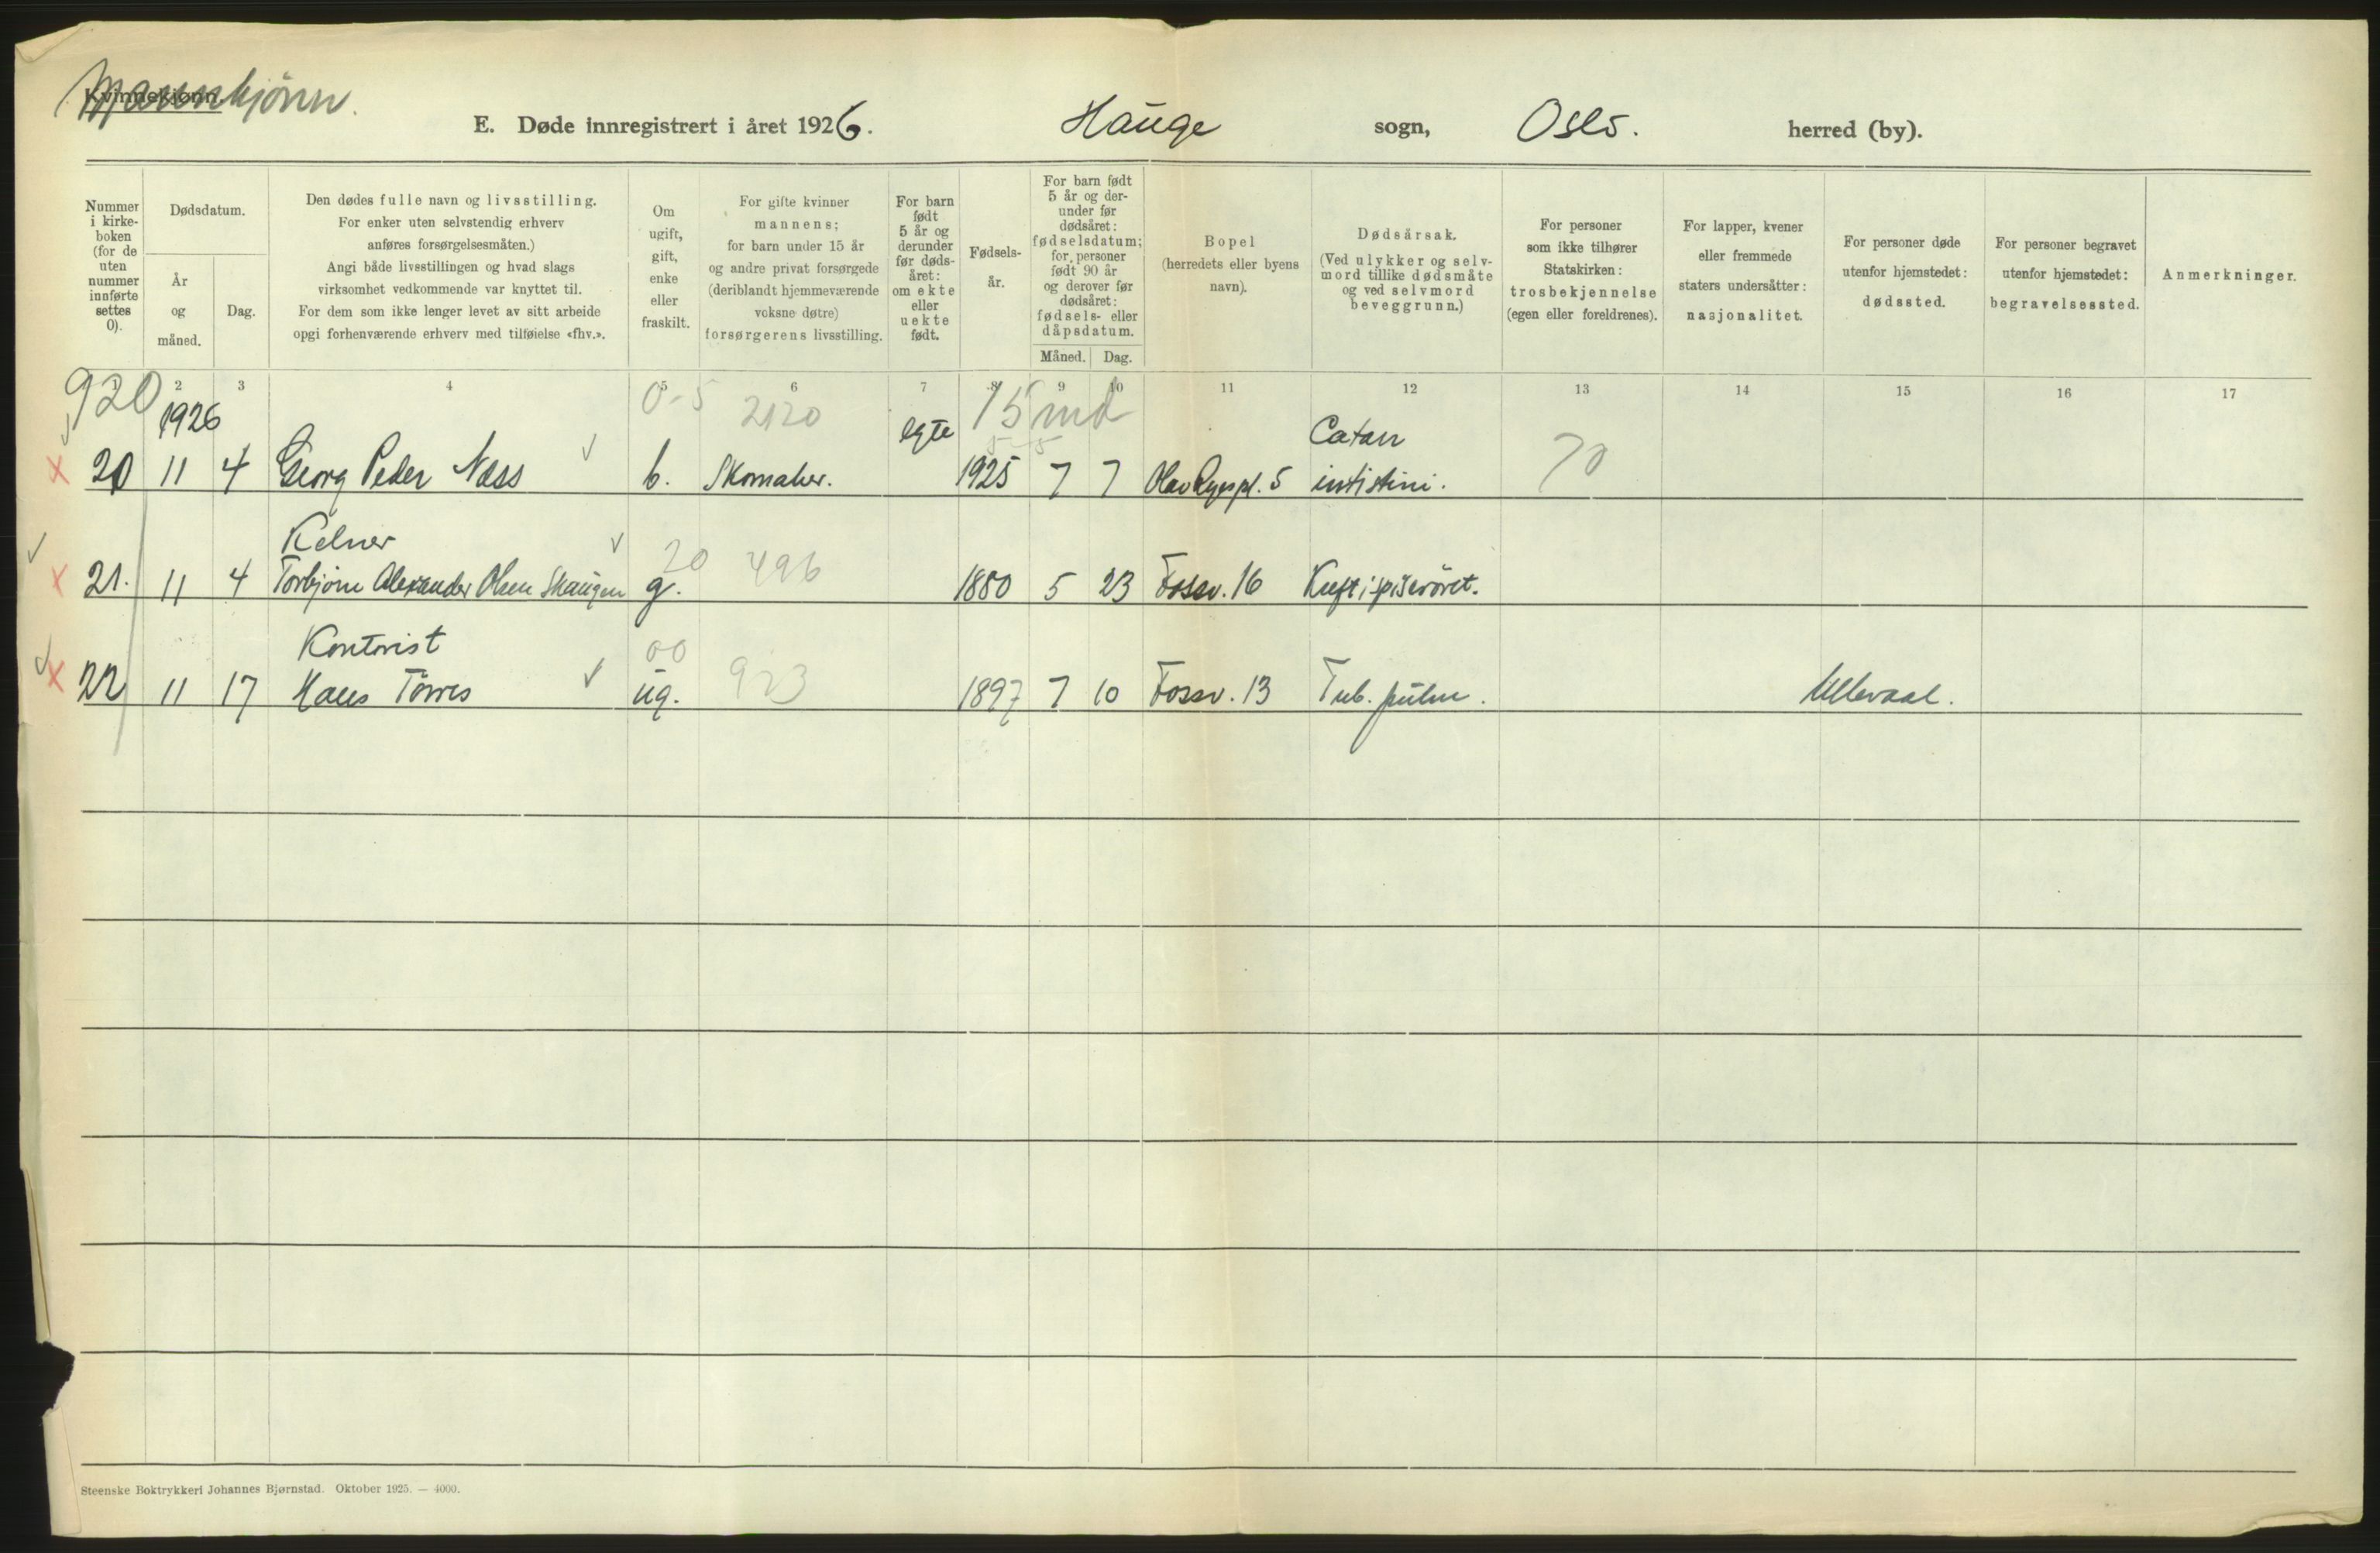 Kvinnekjønn.
Mannkjönn.
E. Døde innregistrert i året 1926. Hauge sogn, Oslo. herred (by).
Nummer i kirke-boken (for de uten nummer innførte settes 0).
Dødsdatum.
År og måned.
Dag.
Den dødes fulle navn og livsstilling.
For enker uten selvstendig erhverv
anføres forsørgelsesmåten.)
Angi både livsstillingen og hvad slags
virksomhet vedkommende var knyttet til.
For dem som ikke lenger levet av sitt arbeide
opgi forhenværende erhverv med tilføielse «fhv.».
Om ugift, gift, enke eller fraskilt.
For gifte kvinner
mannens;
for barn under 15 år
og andre privat forsørgede
(deriblandt hjemmeværende
voksne døtre)
forsørgerens livsstilling.
For barn født 5 år og derunder før døds-året: om ekte eller uekte født.
Fødsels-år.
For barn født 5 år og der-under før dødsåret: fødselsdatum; for personer født 90 år og derover før dødsåret: fødsels- eller dåpsdatum.
Måned. Dag.
Bopel
(herredets eller byens
navn).
Dødsårsak.
(Ved ulykker og selv-
mord tillike dødsmåte
og ved selvmord
beveggrunn.)
For personer
som ikke tilhører
Statskirken:
trosbekjennelse
(egen eller foreldrenes).
For lapper, kvener
eller fremmede
staters undersåtter:
nasjonalitet.
For personer døde
utenfor hjemstedet:
dødssted.
For personer begravet
utenfor hjemstedet:
begravelsessted.
Anmerkninger.
1 2 3 4 5 6 7 8 9 10 11 12 13 14 15 16 17
920 0-5 2120 15 md
1926 egte Catarr
20 11 4 Georg Peder Næss b. Skomaker. 1925 7 7 Olav Ryespl. 5 intistini. 70
Kelner 20 496
21. 11 4 Torbjörn Alexander Olsen Skaugen g. 1880 5 23 Fossv. 16 Kreft i spiseröret.
Kontorist 00 923
22 11 17 Hans Törres ug. 1897 7 10 Fossv. 13 Tub. pulm. Ullevaal.
Steenske Boktrykkeri Johannes Bjørnstad. Oktober 1925. — 4000.